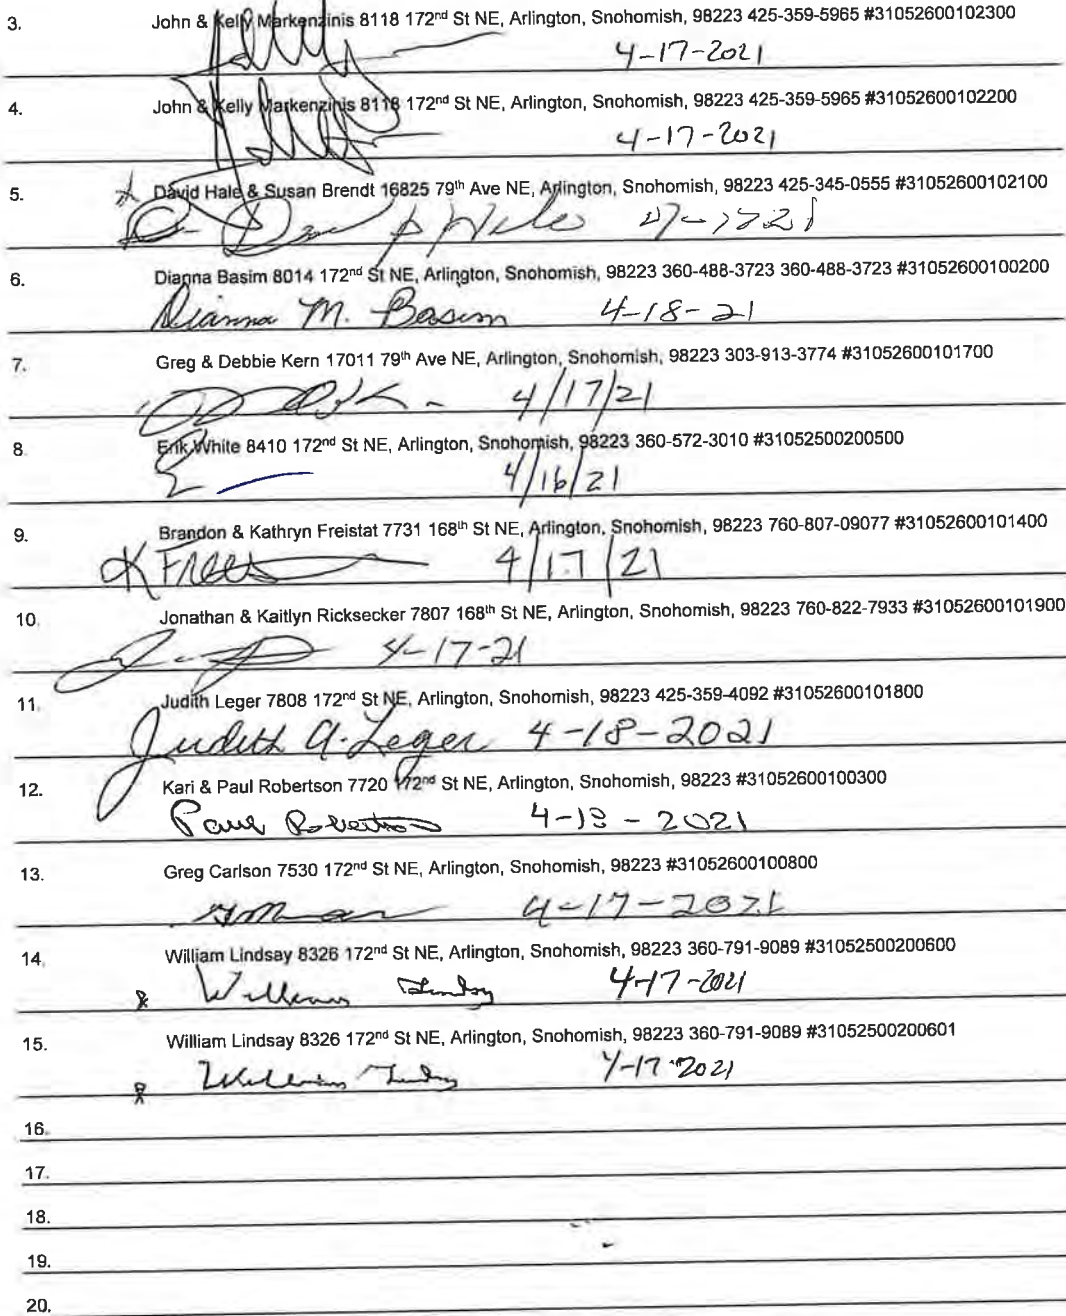 3. John & Kelly Markenzinis 8118 172nd St NE, Arlington, Snohomish, 98223 425-359-5965 #31052600102300
4-17-2021
4. John & Kelly Markenzinis 8118 172nd St NE, Arlington, Snohomish, 98223 425-359-5965 #31052600102200
4-17-2021
5. David Hale & Susan Brendt 16825 79th Ave NE, Arlington, Snohomish, 98223 425-345-0555 #31052600102100
6. Dianna Basim 8014 172nd St NE, Arlington, Snohomish, 98223 360-488-3723 360-488-3723 #31052600100200
Dianna M. Basim 4-18-21
7. Greg & Debbie Kern 17011 79th Ave NE, Arlington, Snohomish, 98223 303-913-3774 #31052600101700
4/17/21
8. Erik White 8410 172nd St NE, Arlington, Snohomish, 98223 360-572-3010 #31052500200500
4/16/21
9. Brandon & Kathryn Freistat 7731 168th St NE, Arlington, Snohomish, 98223 760-807-09077 #31052600101400
4/17/21
10. Jonathan & Kaitlyn Ricksecker 7807 168th St NE, Arlington, Snohomish, 98223 760-822-7933 #31052600101900
4-17-21
11. Judith Leger 7808 172nd St NE, Arlington, Snohomish, 98223 425-359-4092 #31052600101800
Judith A. Leger 4-18-2021
12. Kari & Paul Robertson 7720 172nd St NE, Arlington, Snohomish, 98223 #31052600100300
Paul Robertson 4-18-2021
13. Greg Carlson 7530 172nd St NE, Arlington, Snohomish, 98223 #31052600100800
4-17-2021
14. William Lindsay 8326 172nd St NE, Arlington, Snohomish, 98223 360-791-9089 #31052500200600
William Lindsay 4-17-2021
15. William Lindsay 8326 172nd St NE, Arlington, Snohomish, 98223 360-791-9089 #31052500200601
William Lindsay 4-17-2021
16.
17.
18.
19.
20.